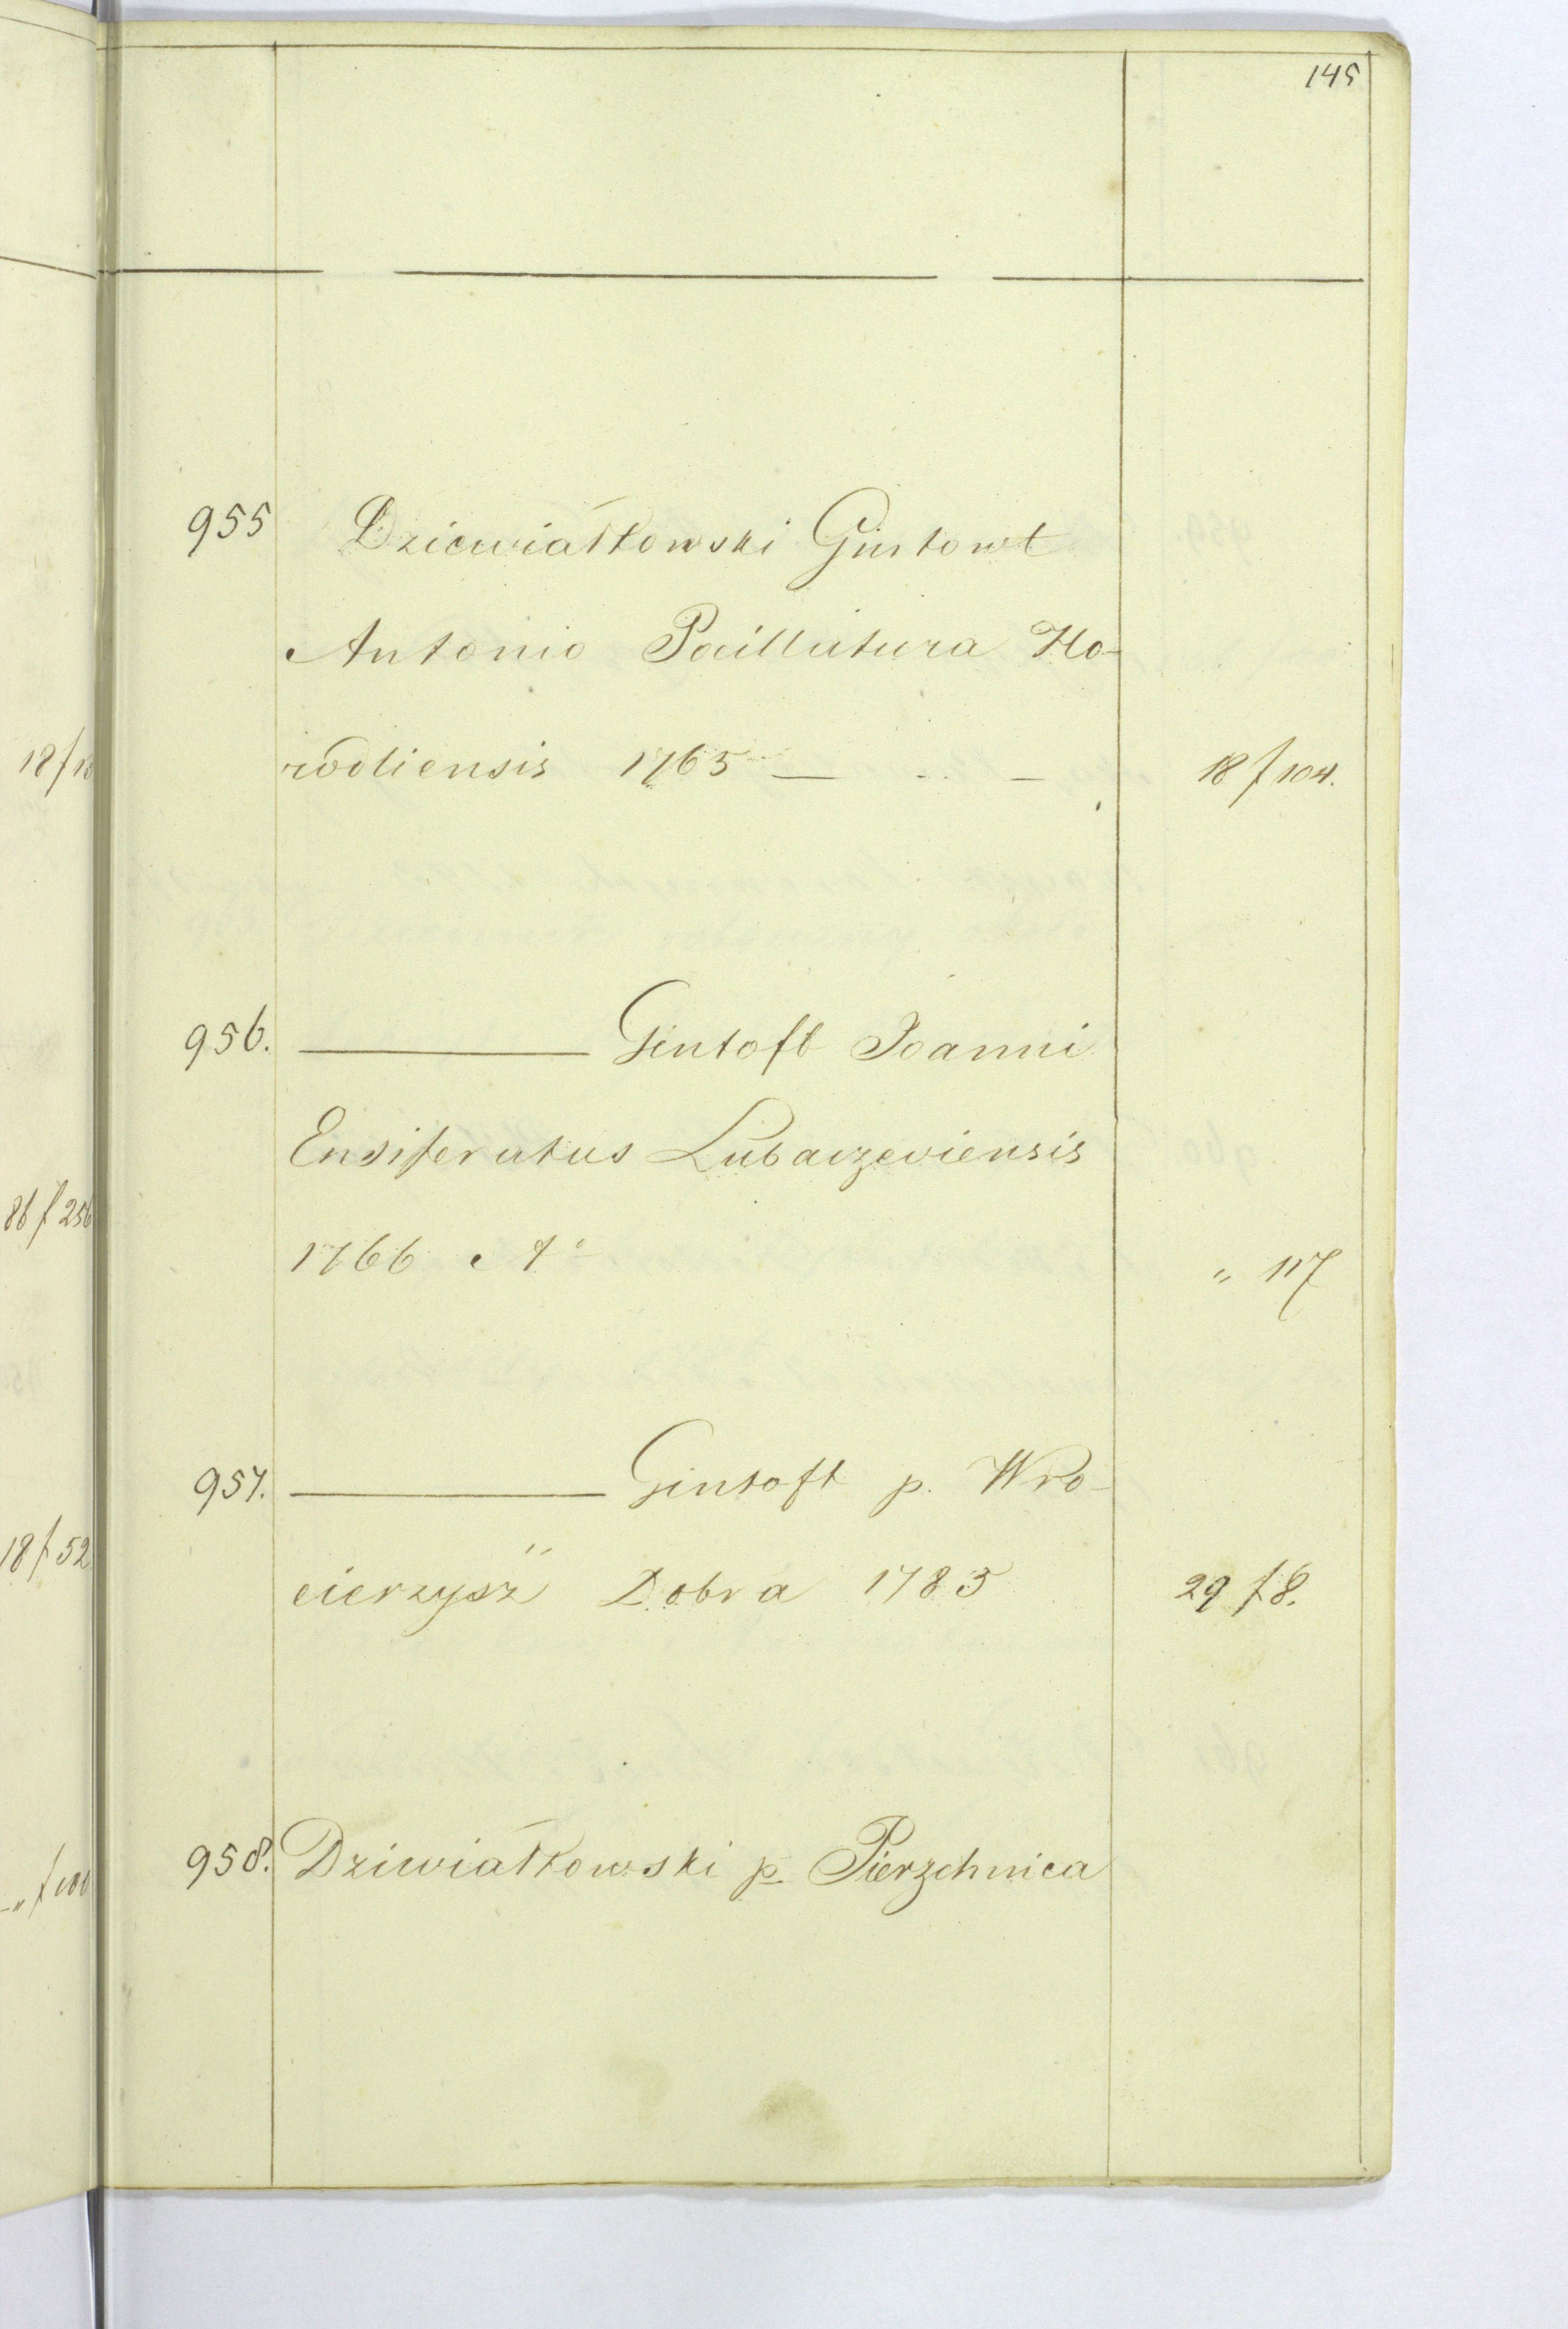 145
955 Dziewiałkowski Gintowt
Antonio Pocillatura Ho-
rodliensis 1765 — .. — 18 f 104.
956. ——— Gintoft Joanni
Ensiferatus Lubaczeviensis
1766 A° „ 117
957. ——— Gintoft p. Wro-
cierzysz" Dobra 1785 29 f 8.
958. Dziwiatkowski p. Pierzchnica
18/1
86 f 256
18 f 52
„ f 100